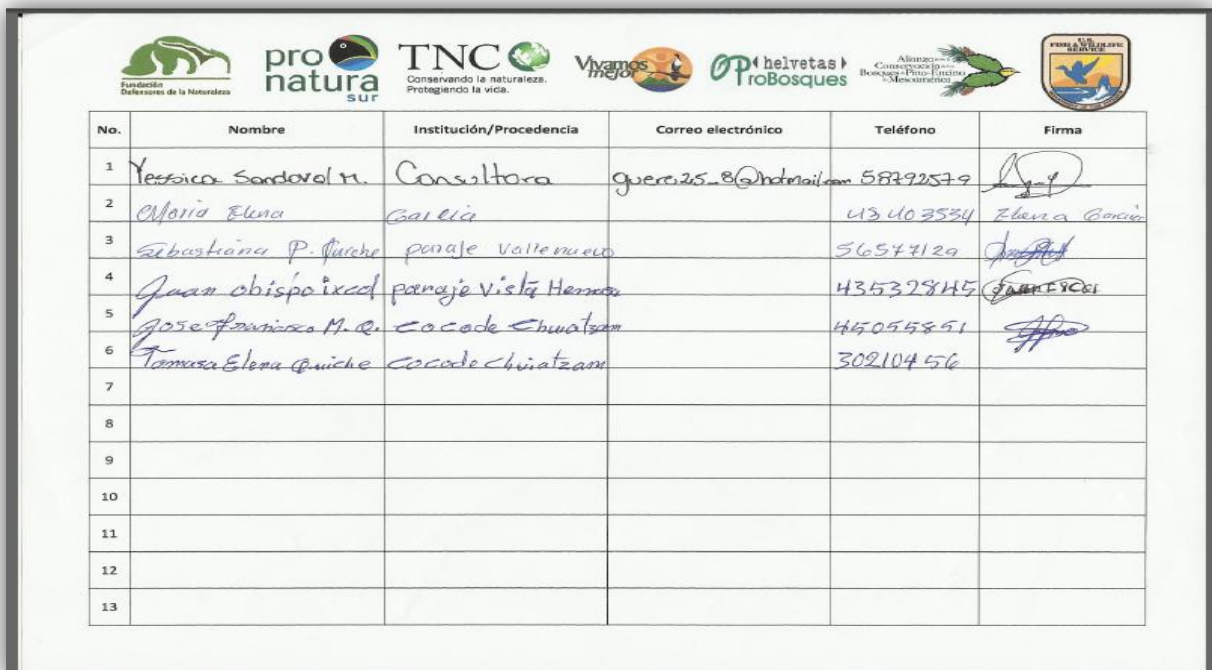 Fundación
Defensores de la Naturaleza
pro
natura
sur
TNC
Conservando la naturaleza.
Protegiendo la vida.
Vivamos
mejor
helvetas
ProBosques
Alianza
Conservación
Bosques de Pino-Encino
de Mesoamérica
U.S.
FISH & WILDLIFE
SERVICE
No. Nombre Institución/Procedencia Correo electrónico Teléfono Firma
1 Yessica Sandoval M. Consultora 58792579
2 Maria Elena Garcia 43403534 Elena Garcia
3 Sebastiana P. paraje Vallenuevo 56577129
4 Juan obispo ixcol paraje Vista Hermosa 43532845
5 Jose Francisco M. Q. cocode Chuatzam 45055851
6 Tomasa Elena Quiche cocode Chuiatzam 30210456
7
8
9
10
11
12
13